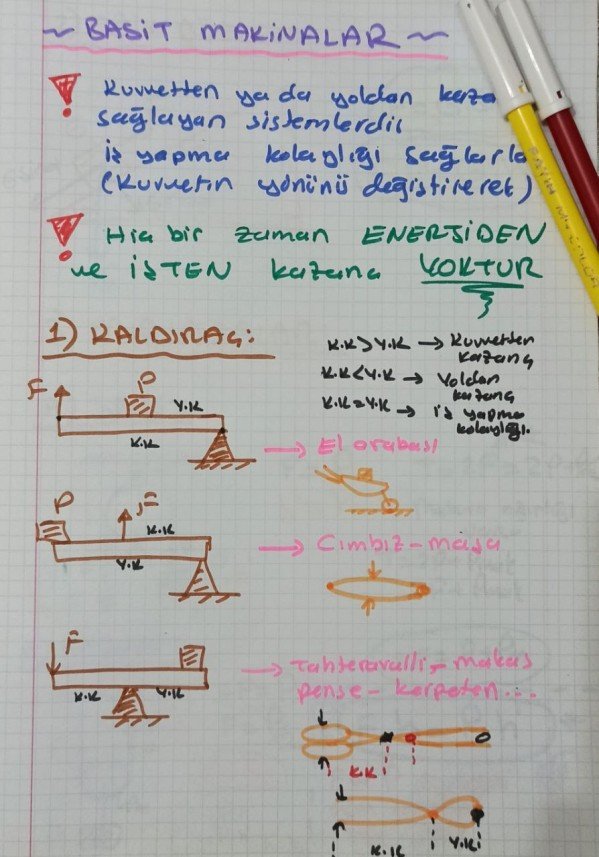 ~ BASİT MAKİNALAR ~
! Kuvvetten ya da yoldan kaza
sağlayan sistemlerdir
iş yapma kolaylığı sağlarla
(Kuvvetin yönünü değiştirerek)
! Hiç bir zaman ENERJİDEN
ve İŞTEN kazanç YOKTUR
1) KALDIRAÇ:
K.K>Y.K → Kuvvetten
kazanç
K.K<Y.K → Yoldan
kazanç
K.K=Y.K → iş yapma
kolaylığı.
F
P
Y.K
K.K
→ El arabası
P
F
K.K
Y.K
→ Cımbız - maşa
F
K.K
Y.K
→ Tahteravalli, - makas
pense - kerpeten...
K.K
K.K
Y.K